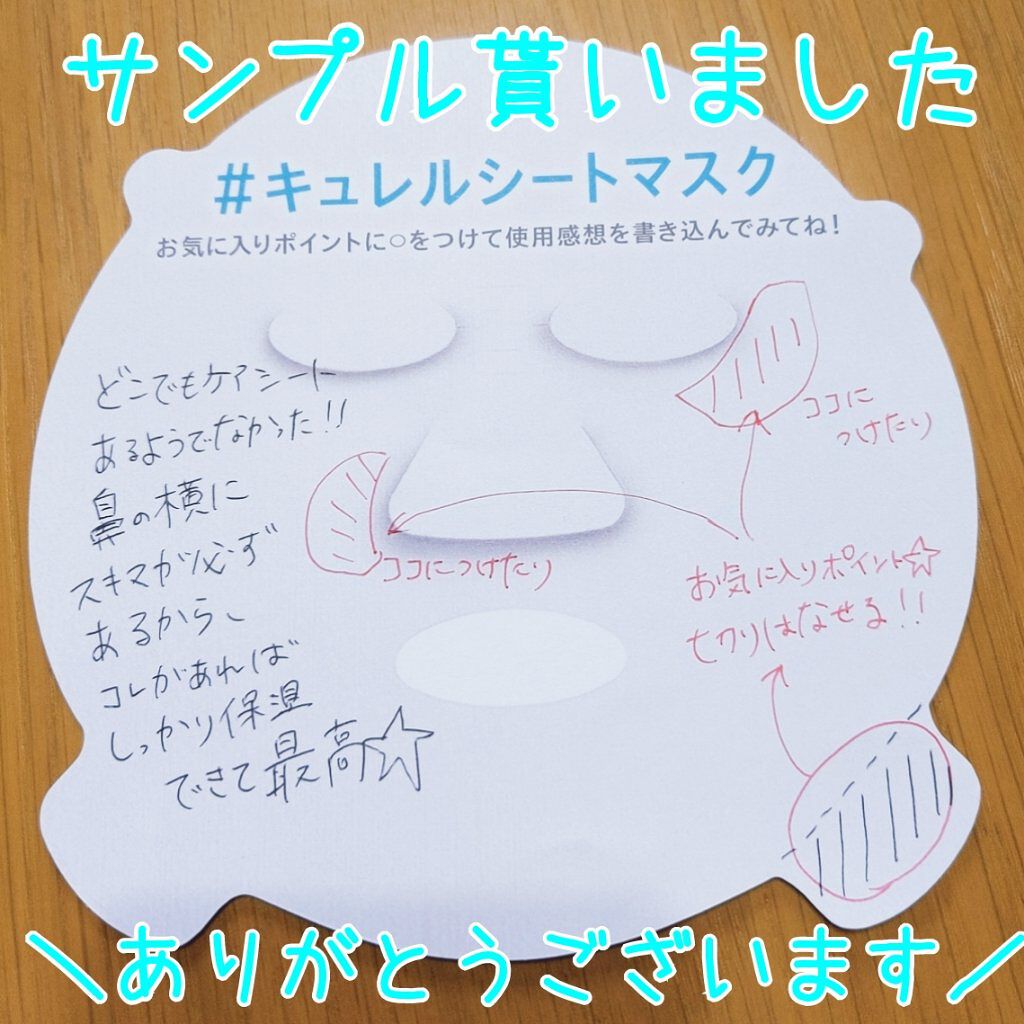 サンプル貰いました
#キュレルシートマスク
お気に入りポイントに○をつけて使用感想を書き込んでみてね!
どこでもケアシート
あるようでなかった!!
鼻の横に
スキマが必ず
あるから、
コレがあれば
しっかり保湿
できて最高☆
ココに
つけたり
ココにつけたり
お気に入りポイント☆
切りはなせる!!
\ありがとうございます/